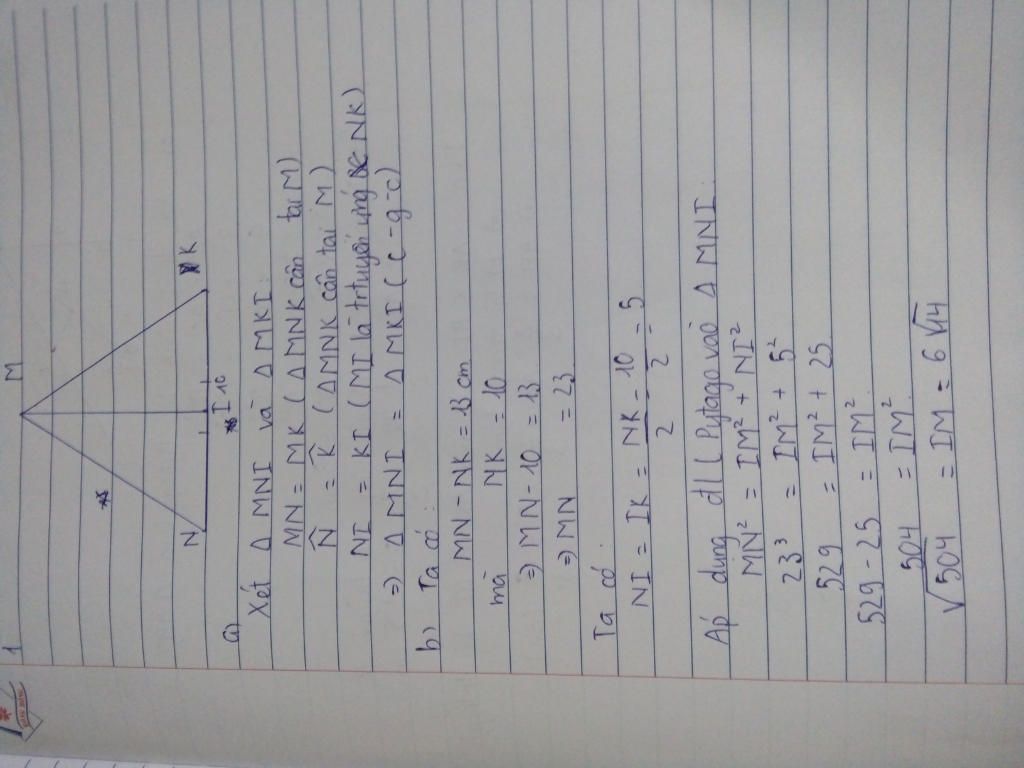 1
M
N
I 10
K
a)
Xét Δ MNI và Δ MKI:
MN = MK ( Δ MNK cân tại M)
N̂ = K̂ ( ΔMNK cân tại M)
NI = KI ( MI là trtuyến ứng NK)
⇒ Δ MNI = Δ MKI ( C - g - c)
b) Ta có:
MN - NK = 13 cm
mà NK = 10
⇒ MN - 10 = 13
⇒ MN = 23
Ta có:
NI = IK = NK/2 = 10/2 = 5
Áp dụng đl ( Pytago vào Δ MNI:
MN² = IM² + NI²
23³ = IM² + 5²
529 = IM² + 25
529 - 25 = IM²
504 = IM²
√504 = IM = 6√14